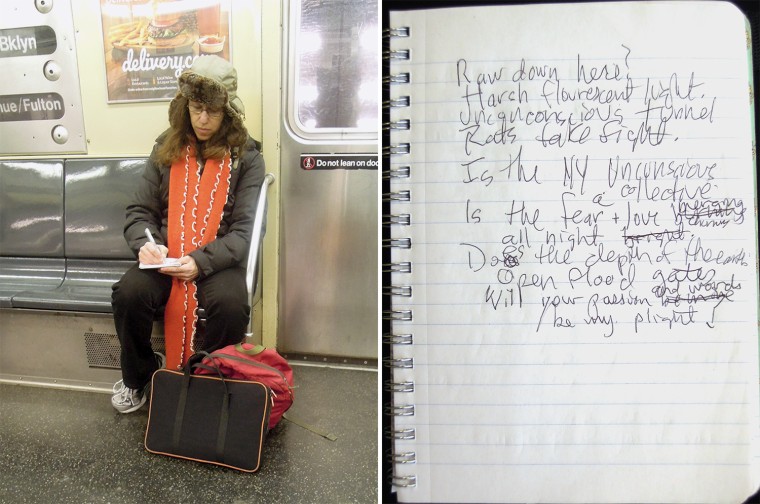 Bklyn
nue/Fulton
delivery.c
Do not lean on doo
Raw down here?
Harch flourescent light.
Unconscious tunnel
Rats take fight.
Is the NY Unconscious
a collective
Is the fear + love merging
all night
Does the depth of the earth
Open flood gates
Will your passion and words
be my plight?